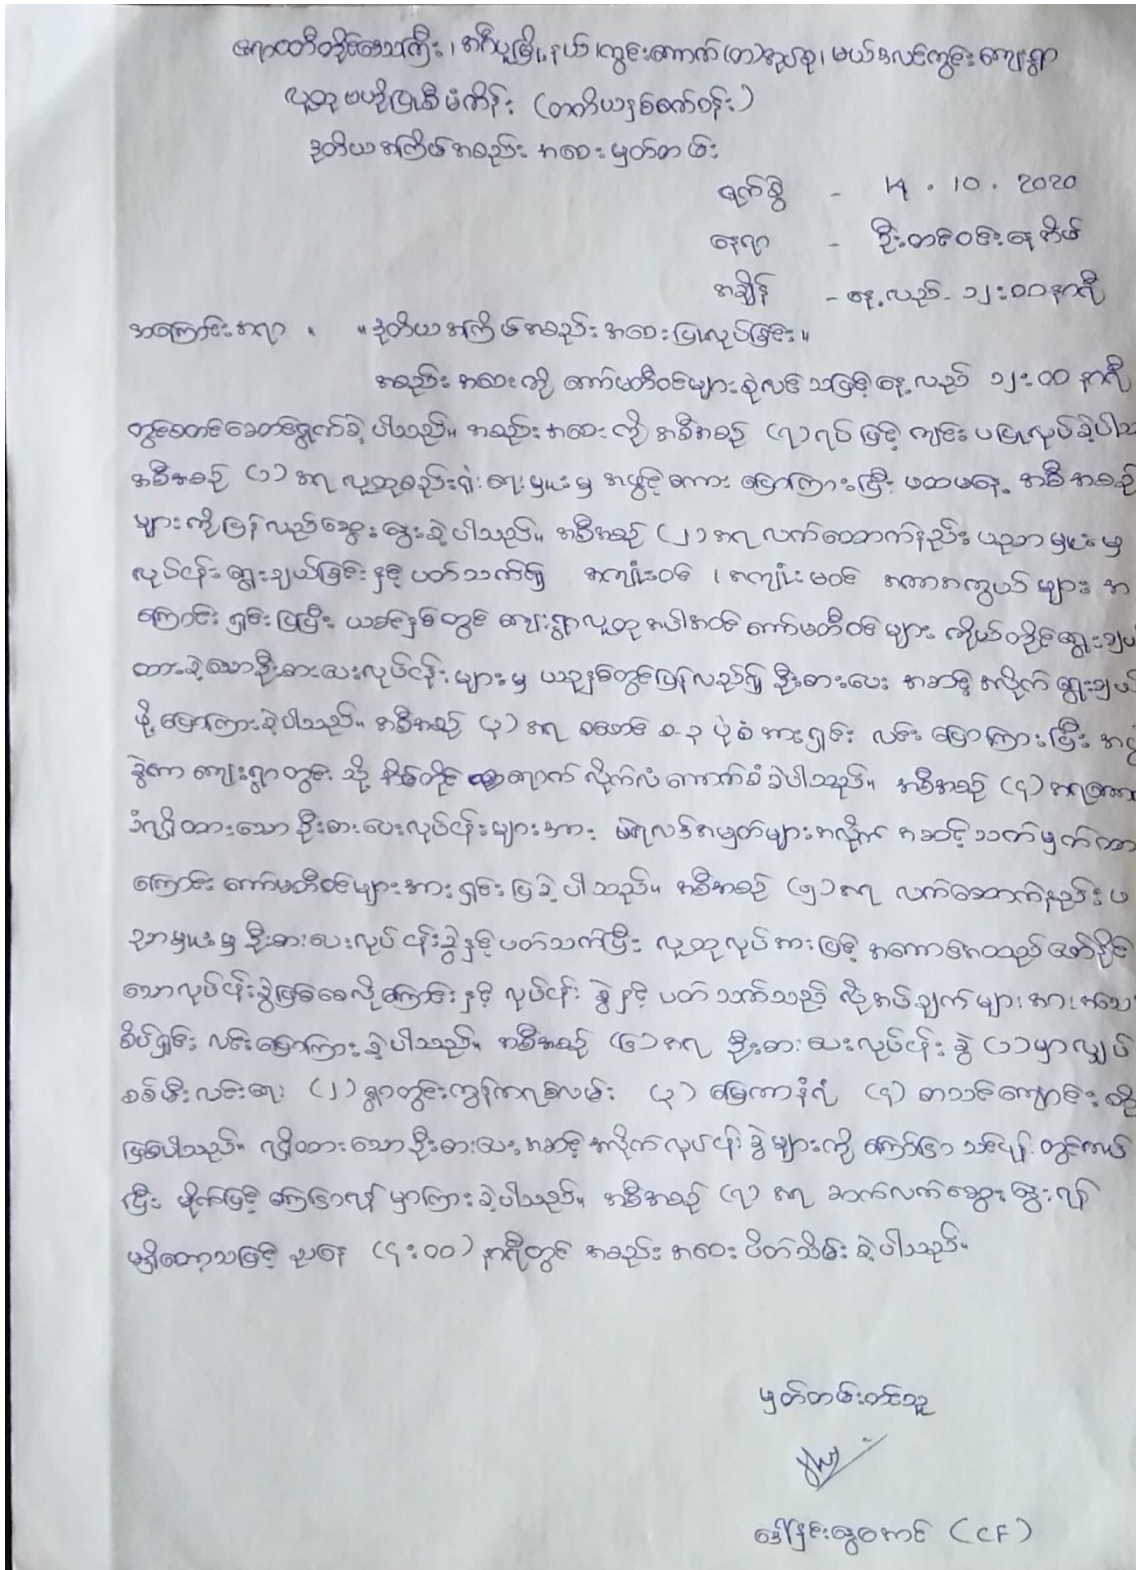 ဧရာဝတီတိုင်းဒေသကြီး၊ အင်္ဂပူမြို့နယ်၊ ကွင်းကောက်(တ)အုပ်စု၊ မယ်ဇလင်ကွင်းကျေးရွာ
လူထုဗဟိုပြုစီမံကိန်း (တတိယနှစ်စက်ဝန်း)
ဒုတိယအကြိမ်အစည်းအဝေးမှတ်တမ်း
ရက်စွဲ - 14 . 10 . 2020
နေရာ - ဦးတင်ဝင်းနေအိမ်
အချိန် - နေ့လည် - ၁၂:၀၀နာရီ
အကြောင်းအရာ ။ ။ ဒုတိယအကြိမ်အစည်းအဝေးပြုလုပ်ခြင်း။
အစည်းအဝေးကို ကော်မတီဝင်များစုံလင်သဖြင့် နေ့လည် ၁၂:၀၀ နာရီ
တွင်စတင်ဆောင်ရွက်ခဲ့ပါသည်။ အစည်းအဝေးကို အစီအစဉ် (၇)ရပ်ဖြင့် ကျင်းပပြုလုပ်ခဲ့ပါသ
အစီအစဉ် (၁)အရ လူထုစည်းရုံးရေးမှူးမှ အဖွင့်စကား ပြောကြားပြီး ပထမနေ့ အစီအစဉ်
များကိုပြန်လည်ဆွေးနွေးခဲ့ပါသည်။ အစီအစဉ် (၂)အရ လက်ထောက်နည်းပညာမှူးမှ
လုပ်ငန်းရွေးချယ်ခြင်းနှင့် ပတ်သက်၍ အကျုံးဝင် ၊ အကျုံးမဝင် အကာအကွယ်များ အ
ကြောင်း ရှင်းပြပြီး ယခင်နှစ်တွင် ကျေးရွာလူထုအပါအဝင် ကော်မတီဝင်များ ကိုယ်တိုင်ရွေးချယ်
ထားခဲ့သောဦးစားပေးလုပ်ငန်းများမှ ယခုနှစ်တွင်ပြန်လည်၍ ဦးစားပေး အဆင့်အလိုက်ရွေးချယ်
ဖို့ပြောကြားခဲ့ပါသည်။ အစီအစဉ် (၃)အရ စဖောင် စ-၃ ပုံစံအားရှင်း လင်းပြောကြားပြီး အဖွဲ့
ခွဲကာ ကျေးရွာတွင်းသို့ အိမ်တိုင်ရာရောက် လိုက်လံကောက်ခံခဲ့ပါသည်။ အစီအစဉ် (၄)အရ
ရရှိထားသောဦးစားပေးလုပ်ငန်းများအား မဲရလဒ်အမှတ်များအလိုက် အဆင့်သတ်မှတ်ကာ
ကြောင်း ကော်မတီဝင်များအားရှင်းပြခဲ့ပါသည်။ အစီအစဉ် (၅)အရ လက်ထောက်နည်းပ
ညာမှူးမှ ဦးစားပေးလုပ်ငန်းခွဲနှင့်ပတ်သက်ပြီး လူထုလုပ်အားဖြင့် အကောင်အထည်ဖော်နိုင်
သောလုပ်ငန်းခွဲဖြစ်စေလိုကြောင်းနှင့် လုပ်ငန်း ခွဲနှင့် ပတ်သက်သည့် လိုအပ်ချက်များအားအသေး
စိတ်ရှင်း လင်းပြောကြားခဲ့ပါသည်။ အစီအစဉ် (၆)အရ ဦးစားပေးလုပ်ငန်း ခွဲ (၁)မှာလျှပ်
စစ်မီးလင်းရေး (၂)ရွာတွင်းကွန်ကရစ်လမ်း (၃) မြေကာနံရံ (၄) စာသင်ကျောင်း တို့
ဖြစ်ပါသည်။ ရရှိထားသောဦးစားပေးအဆင့်အလိုက်လုပ်ငန်းခွဲများကို ကြော်ငြာ သင်ပုန်းတွင်ကပ်
ပြီး မိုက်ဖြင့် ကြေငြာလုံမှာကြားခဲ့ပါသည်။ အစီအစဉ် (၇) အရ ဆက်လက်ဆွေးနွေးရန်
မရှိတော့သဖြင့် ညနေ (၄:၀၀) နာရီတွင် အစည်းအဝေး ပိတ်သိမ်းခဲ့ပါသည်။
မှတ်တမ်းတင်သူ
ဒေါ်နှင်းနွေအောင် (CF)